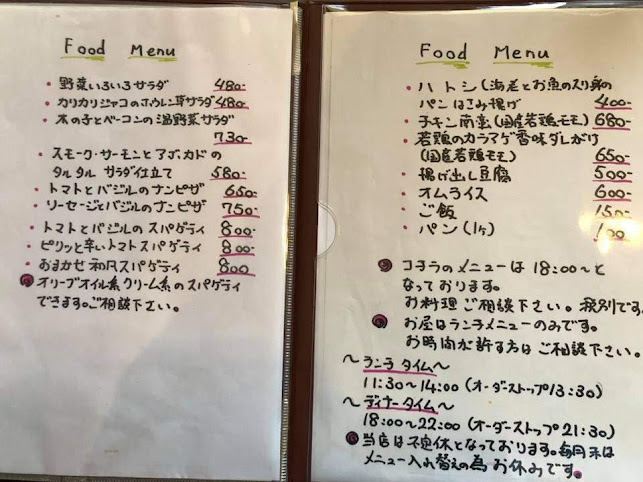 Food Menu
・野菜いろいろサラダ 480-
・カリカリジャコのホウレン草サラダ 480-
・木の子とベーコンの温野菜サラダ
730-
スモーク・サーモンとアボカドの
・タルタル サラダ仕立て 580-
・トマトとバジルのナンピザ 650-
・ソーセージとバジルのナンピザ 750-
・トマトとバジルのスパゲティ 800-
・ピリッと辛いトマトスパゲティ 800-
・おまかせ 和風スパゲティ 800
オリーブオイル系 クリーム系のスパゲティ
できます。ご相談下さい。
Food Menu
・ハトシ(海老とお魚のスリ身の
パンはさみ揚げ 400-
・チキン南蛮(国産若鶏モモ) 680-
・若鶏のカラアゲ香味ダレがけ
(国産若鶏モモ) 650-
・揚げ出し豆腐 500-
・オムライス 600-
・ご飯 150-
・パン(1ヶ) 100
コチラのメニューは 18:00〜と
なっております。
お料理ご相談下さい。税別です。
お昼はランチメニューのみです。
お時間が許す方は ご相談下さい。
〜ランチタイム〜
11:30〜14:00(オーダーストップ13:30)
〜ディナータイム〜
18:00〜22:00(オーダーストップ21:30)
当店は不定休となっております。毎月末は
メニュー入れ替えの為 お休みです。